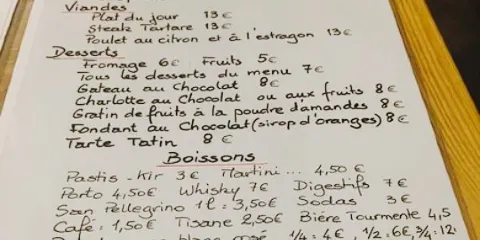 Viandes
Plat du jour 13 €
Steak Tartare 13 €
Poulet au citron et à l'estragon 13 €
Desserts
Fromage 6€ Fruits 5€
Tous les desserts du menu 7€
Gateau au Chocolat 8€
Charlotte au Chocolat ou aux fruits 8€
Gratin de fruits à la poudre d'amandes 8€
Fondant au Chocolat (sirop d'oranges) 8€
Tarte Tatin 8€
Boissons
Pastis - Kir 3€ Martini... 4,50€
Porto 4,50€ Whisky 7€ Digestifs 7€
San Pellegrino 1l : 3,50€ Sodas 3€
Café : 1,50€ Tisane 2,50€ Bière Tourmente 4,5
1/4 = 4€, 1/2 : 6€, 3/4 : 12